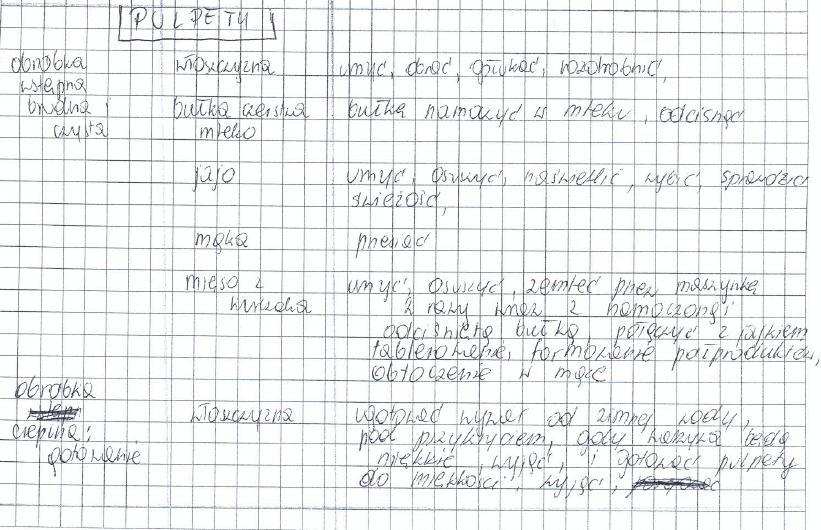 PULPETY
obróbka włoszczyzna umyć, obrać, opłukać, rozdrobnić,
wstępna
brudna, bułka czerstwa bułkę namoczyć w mleku, odcisnąć
czysta mleko
jajo umyć, osuszyć, naświetlić, wybić, sprawdzić
świeżość,
mąka przesiać
mięso z umyć, osuszyć, zemleć przez maszynkę
kurczaka 2 razy wraz z namoczoną i
odciśniętą bułką, połączyć z jajkiem
tablerowanie, formowanie półproduktów,
obtoczenie w mące
obróbka
włoszczyzna ugotować wywar od zimnej wody,
cieplna: pod przykryciem, gdy warzywa będą
gotowanie miękkie, wyjąć, i gotować pulpety
do miękkości, wyjąć,